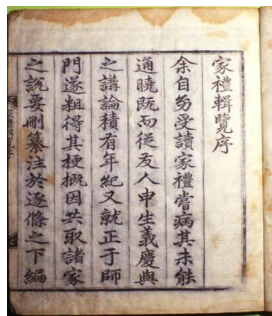 家禮輯覽序
余自㓜受讀家禮嘗病其未能
通曉旣而從友人申生義慶與
之講論積有年紀又就正于師
門遂粗得其梗槪因共取諸家
之說要刪纂注於逐條之下編